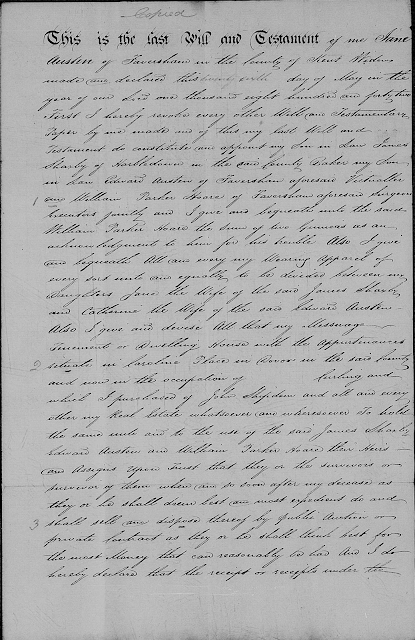 Copied
This is the last Will and Testament of me Jane
Austen of Faversham in the County of Kent Widow
made and declared this day of May in the
year of our Lord one thousand eight hundred and forty two
First I hereby revoke every other Will and Testamentary
Paper by me made and of this my last Will and
Testament do constitute and appoint my Son in Law James
of in the said County Baker my Son
in Law Edward Austen of Faversham aforesaid
1 and William Parker Hoare of Faversham aforesaid Surgeon
Executors jointly and I give and bequeath unto the said
William Parker Hoare the Sum of two Guineas as an
acknowledgment to him for his trouble Also I give
and bequeath All and every my Wearing Apparel of
every sort unto and equally to be divided between my
Daughters Jane the Wife of the said James
and Catherine the Wife of the said Edward Austen
Also I give and devise All that my Messuage
Tenement or Dwelling House with the Appurtenances
2 situate in Caroline Place in Dover in the said County
and now in the occupation of Curling and
which I purchased of John and all and every
other my Real Estate whatsoever and wheresoever To hold
the same unto and to the use of the said James
Edward Austen and William Parker Hoare their Heirs
and Assigns Upon Trust that they or the survivors or
survivor of them when and so soon after my decease as
they or he shall deem best and most expedient do and
3 shall sell and dispose thereof by public Auction or
private Contract as they or he shall think best for
the most Money that can reasonably be had And I do
hereby declare that the receipt or receipts under the